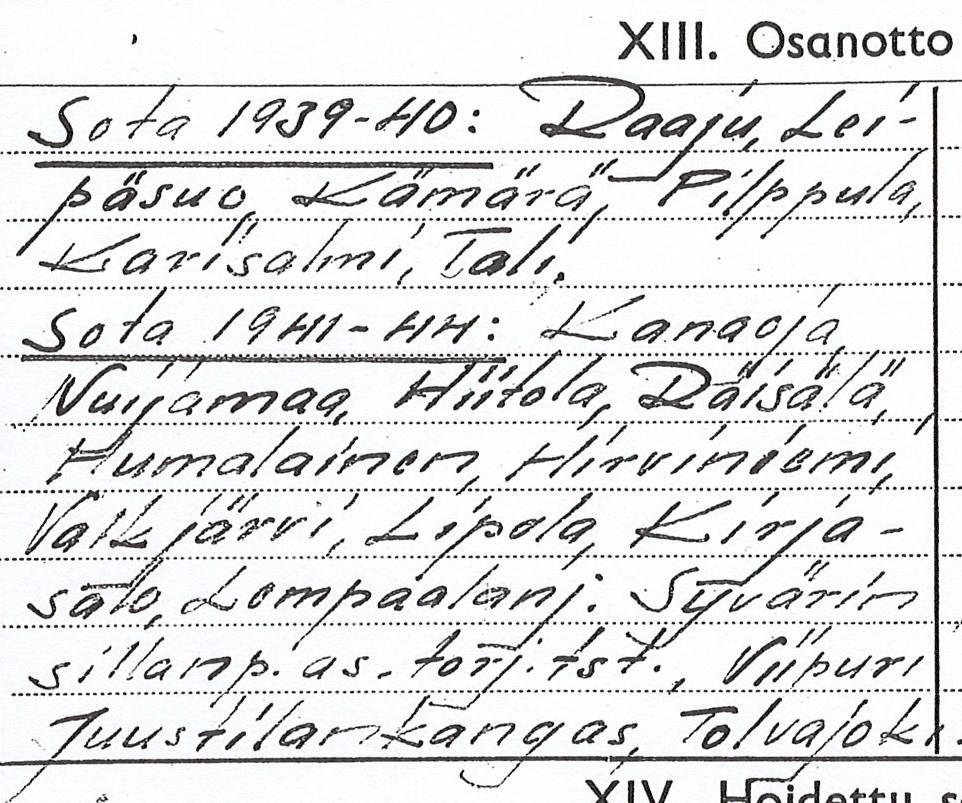 XIII. Osanotto
Sota 1939-40: Raaju, Lei-
päsuo, Kämärä, Pilppula,
Karisalmi, Tali.
Sota 1941-44: Kanaoja
Nuijamaa, Hiitola, Räisälä,
Humalainen, Hirviniemi,
Valkjärvi, Lipola, Kirja-
salo, Lempaalanj. Syvärin
sillanp. as. torj. tst., Viipuri
Juustilankangas, Tolvajoki.
XIV. Hoidettu s